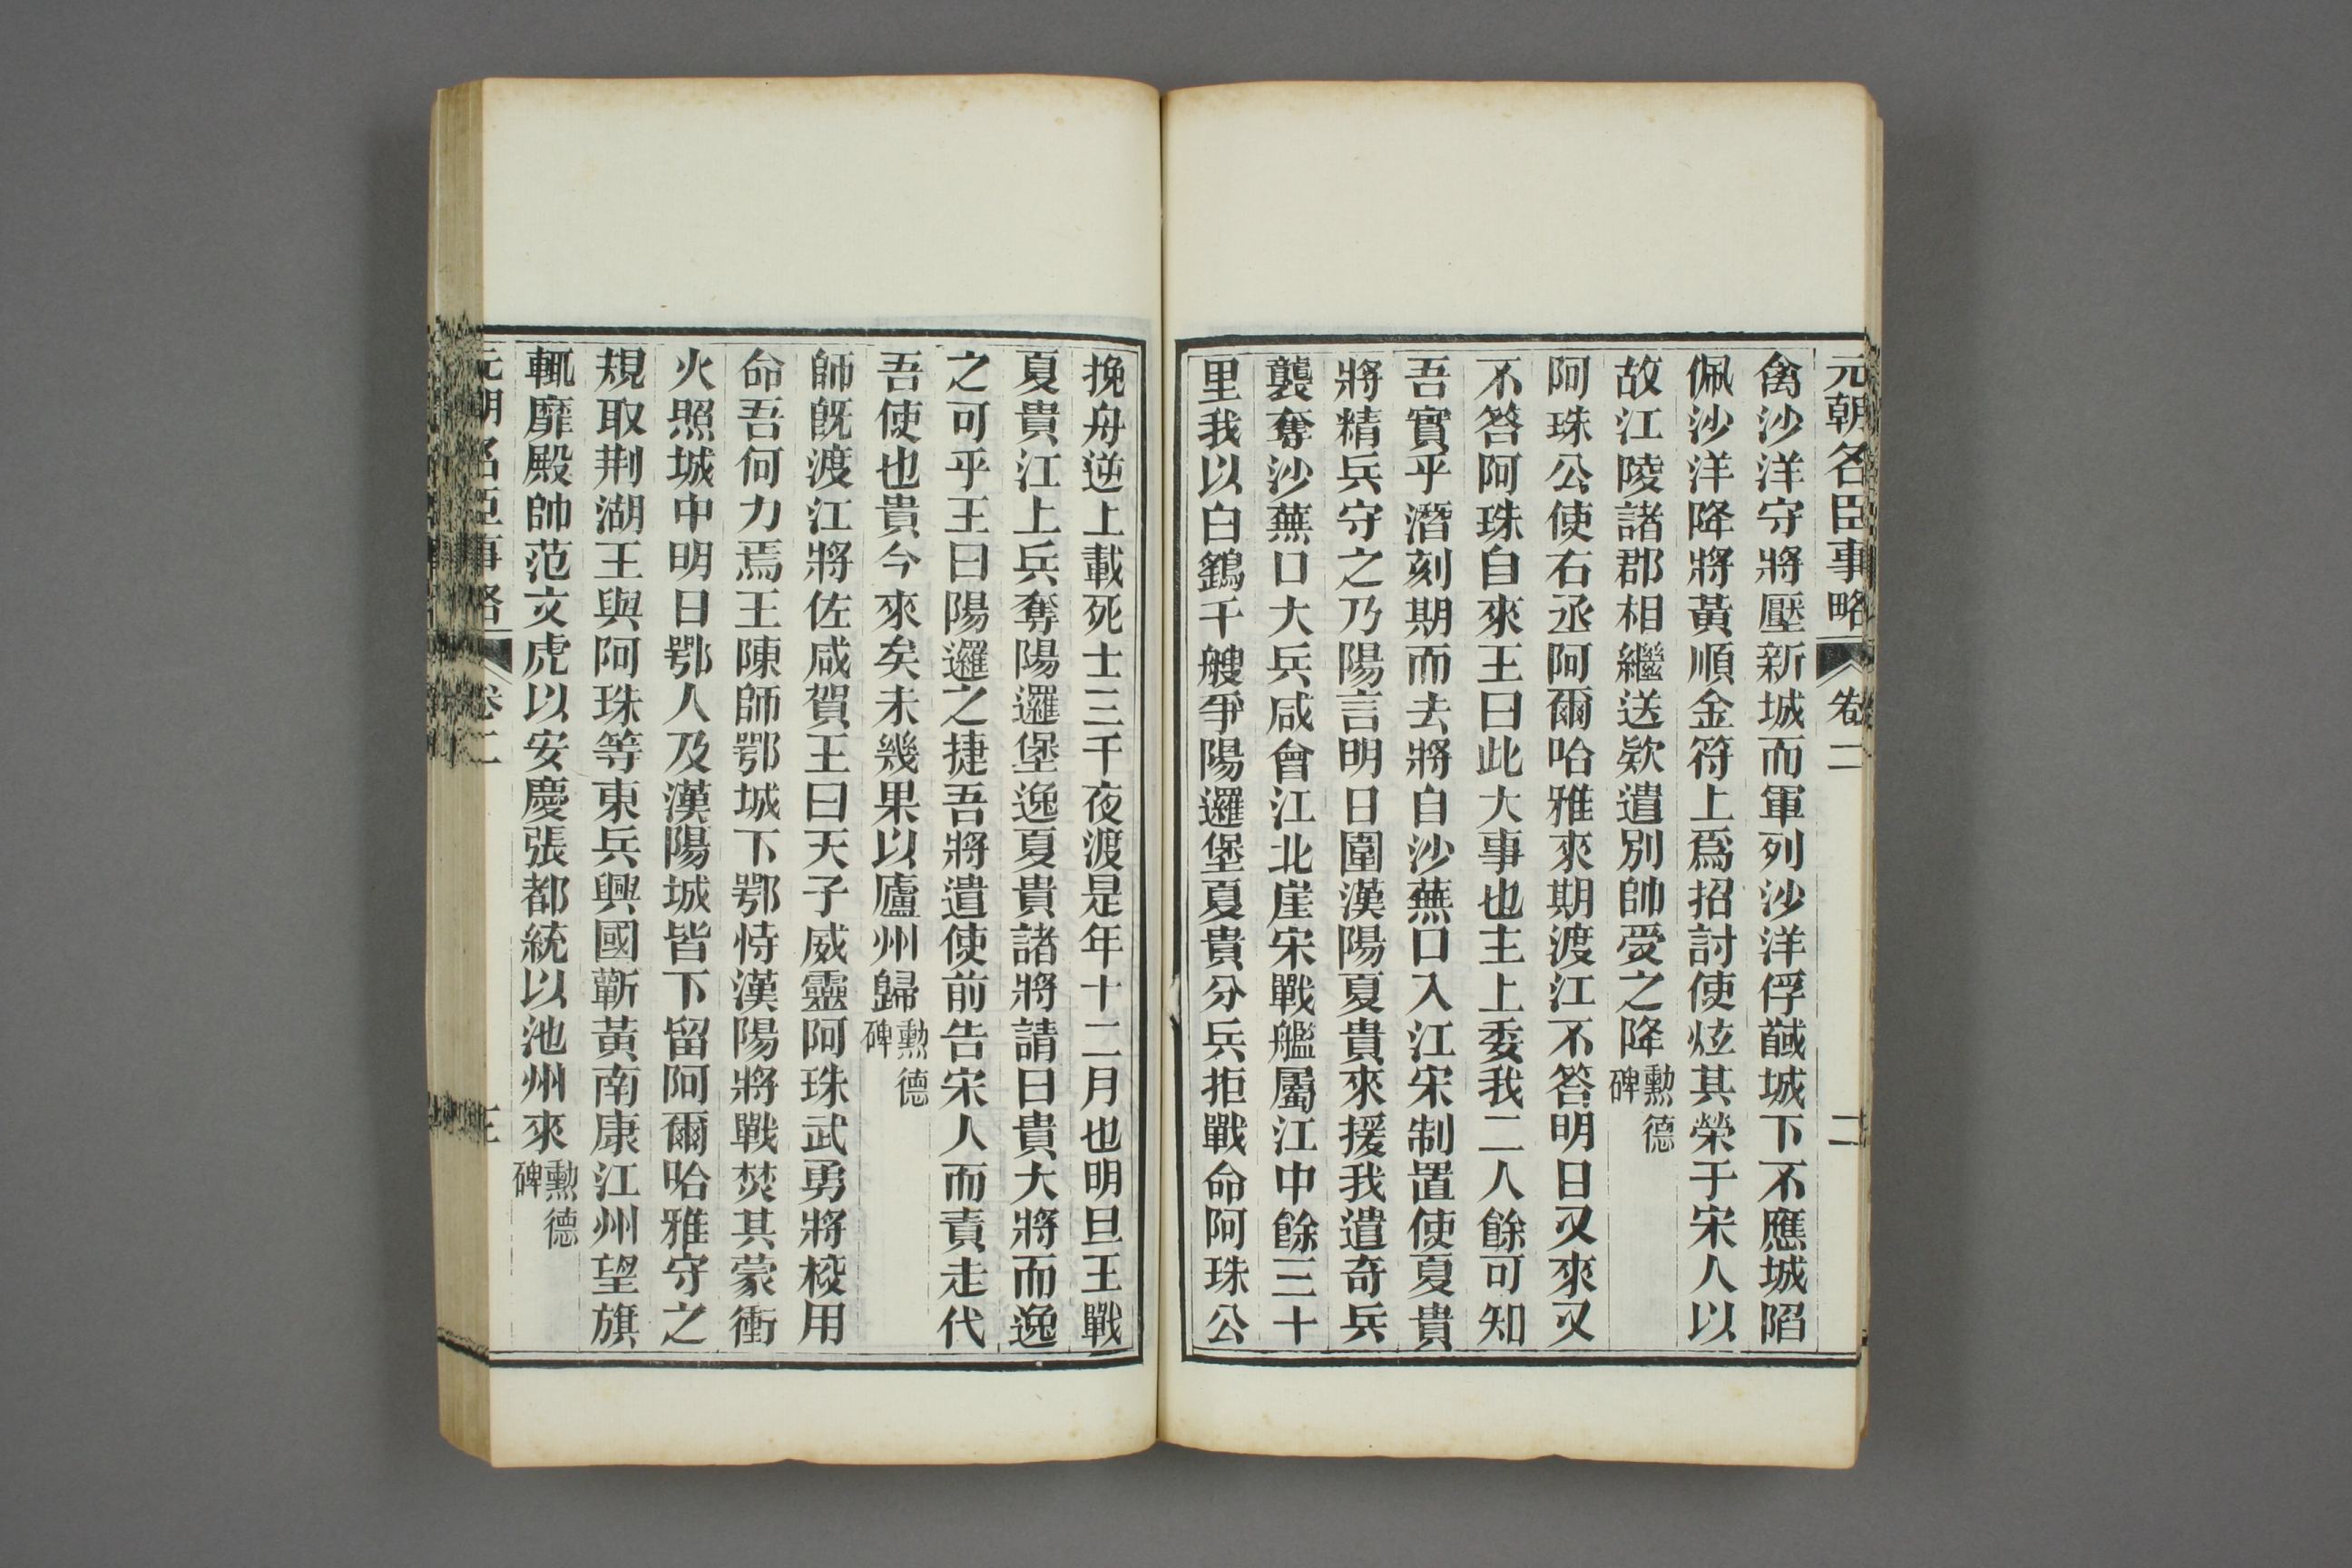 元朝名臣事略 卷二 二
禽沙洋守將壓新城而軍列沙洋俘馘城下不應城陷
佩沙洋降將黃順金符上爲招討使炫其榮于宋人以
故江陵諸郡相繼送欵遣別帥受之降勳德碑
阿珠公使右丞阿爾哈雅來期渡江不答明日又來又
不答阿珠自來王曰此大事也主上委我二人餘可知
吾實乎潛刻期而去將自沙蕪口入江宋制置使夏貴
將精兵守之乃陽言明日圍漢陽夏貴來援我遣奇兵
襲奪沙蕪口大兵咸會江北崖宋戰艦屬江中餘三十
里我以白鷂千艘爭陽邏堡夏貴分兵拒戰命阿珠公
挽舟逆上載死士三千夜渡是年十二月也明旦王戰
夏貴江上兵奪陽邏堡逸夏貴諸將請曰貴大將而逸
之可乎王曰陽邏之捷吾將遣使前告宋人而責走代
吾使也貴今來矣未幾果以廬州歸勳德碑
師旣渡江將佐咸賀王曰天子威靈阿珠武勇將校用
命吾何力焉王陳師鄂城下鄂恃漢陽將戰焚其蒙衝
火照城中明日鄂人及漢陽城皆下留阿爾哈雅守之
規取荆湖王與阿珠等東兵興國蘄黃南康江州望旗
輒靡殿帥范文虎以安慶張都統以池州來勳德碑
元朝名臣事略 卷二 三